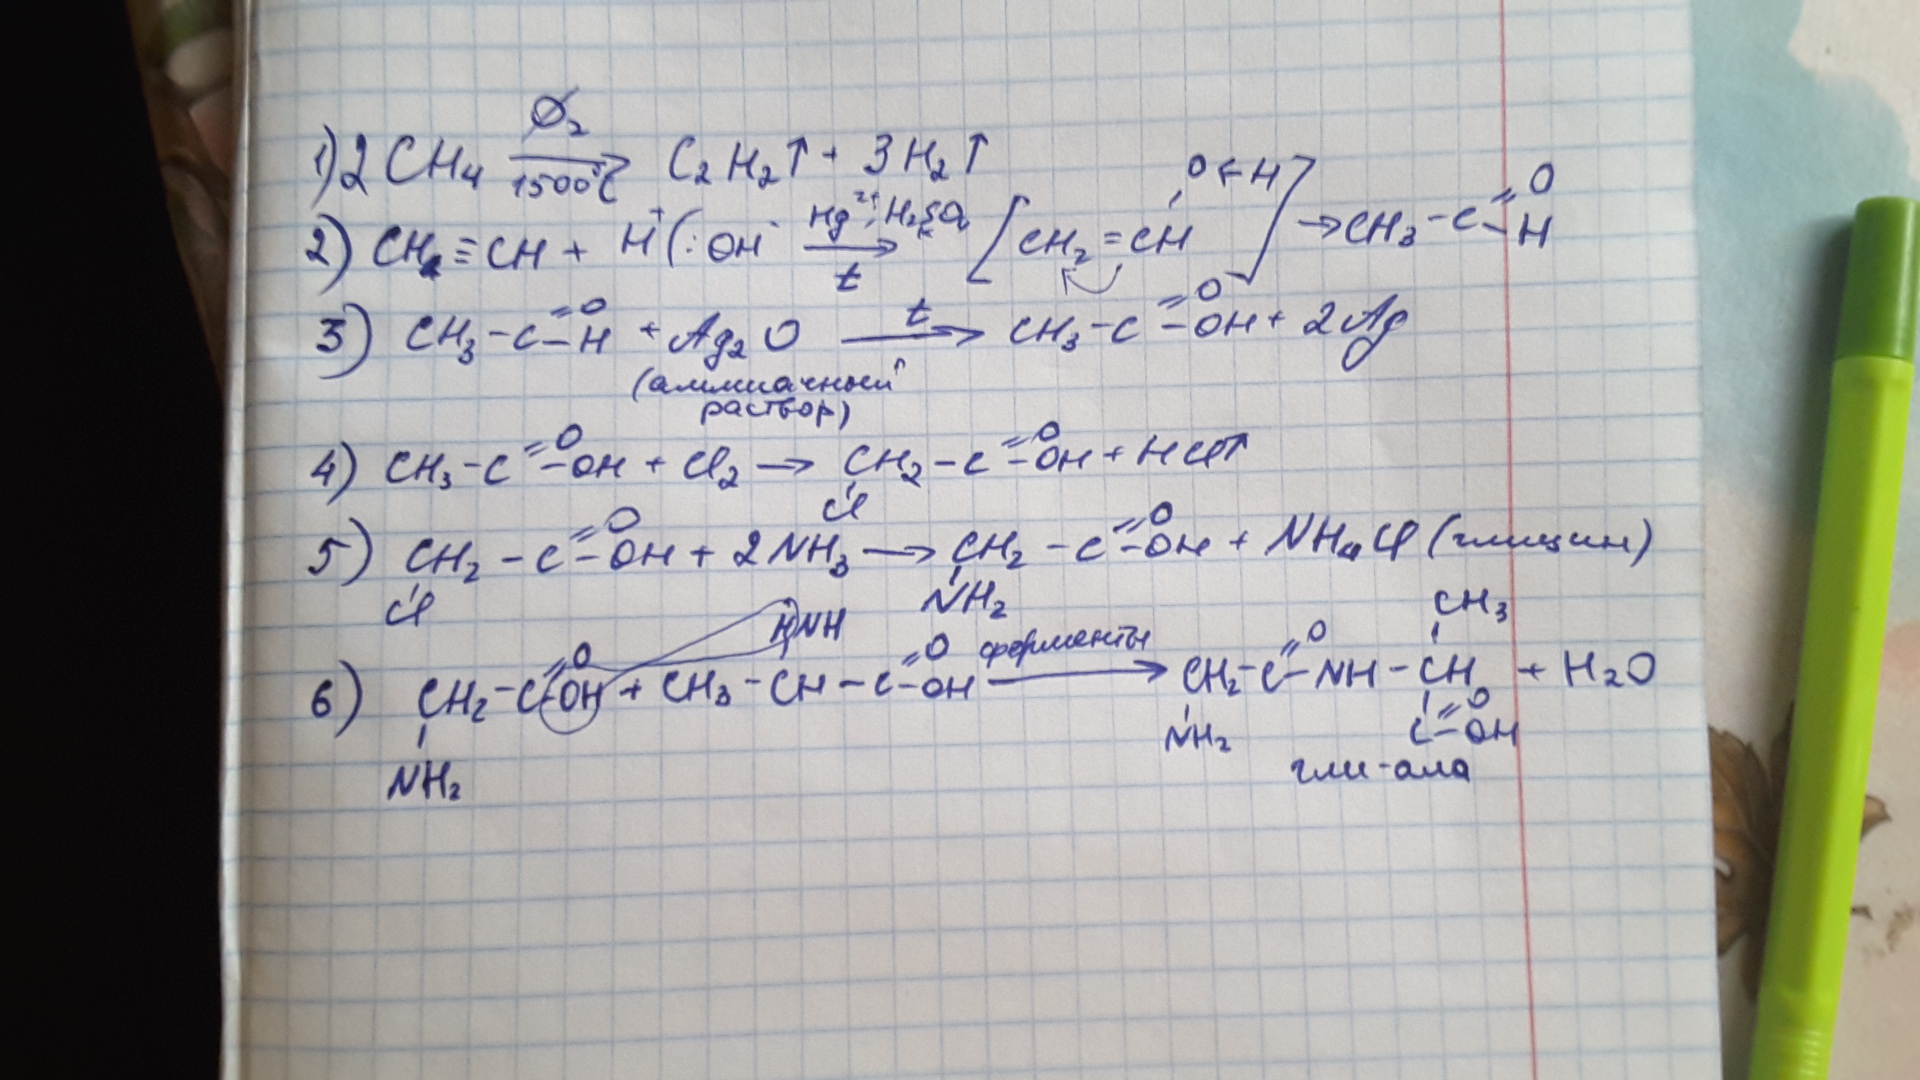 1) 2CH₄ →(O̸₂, 1500°C) C₂H₂↑ + 3H₂↑
2) CH≡CH + H⁺(:OH⁻ →(Hg²⁺; H₂SO₄, t) [CH₂=CH-O←H] → CH₃-C(=O)-H
3) CH₃-C(=O)-H + Ag₂O →(t) CH₃-C(=O)-OH + 2Ag
(аммиачный
раствор)
4) CH₃-C(=O)-OH + Cl₂ → CH₂(Cl)-C(=O)-OH + HCl↑
5) CH₂(Cl)-C(=O)-OH + 2NH₃ → CH₂(NH₂)-C(=O)-OH + NH₄Cl (глицин)
6) CH₂(NH₂)-C(=O)-OH + CH₃-CH(HNH)-C(=O)-OH →(ферменты) CH₂(NH₂)-C(=O)-NH-CH(CH₃)-C(=O)-OH + H₂O
гли-ала